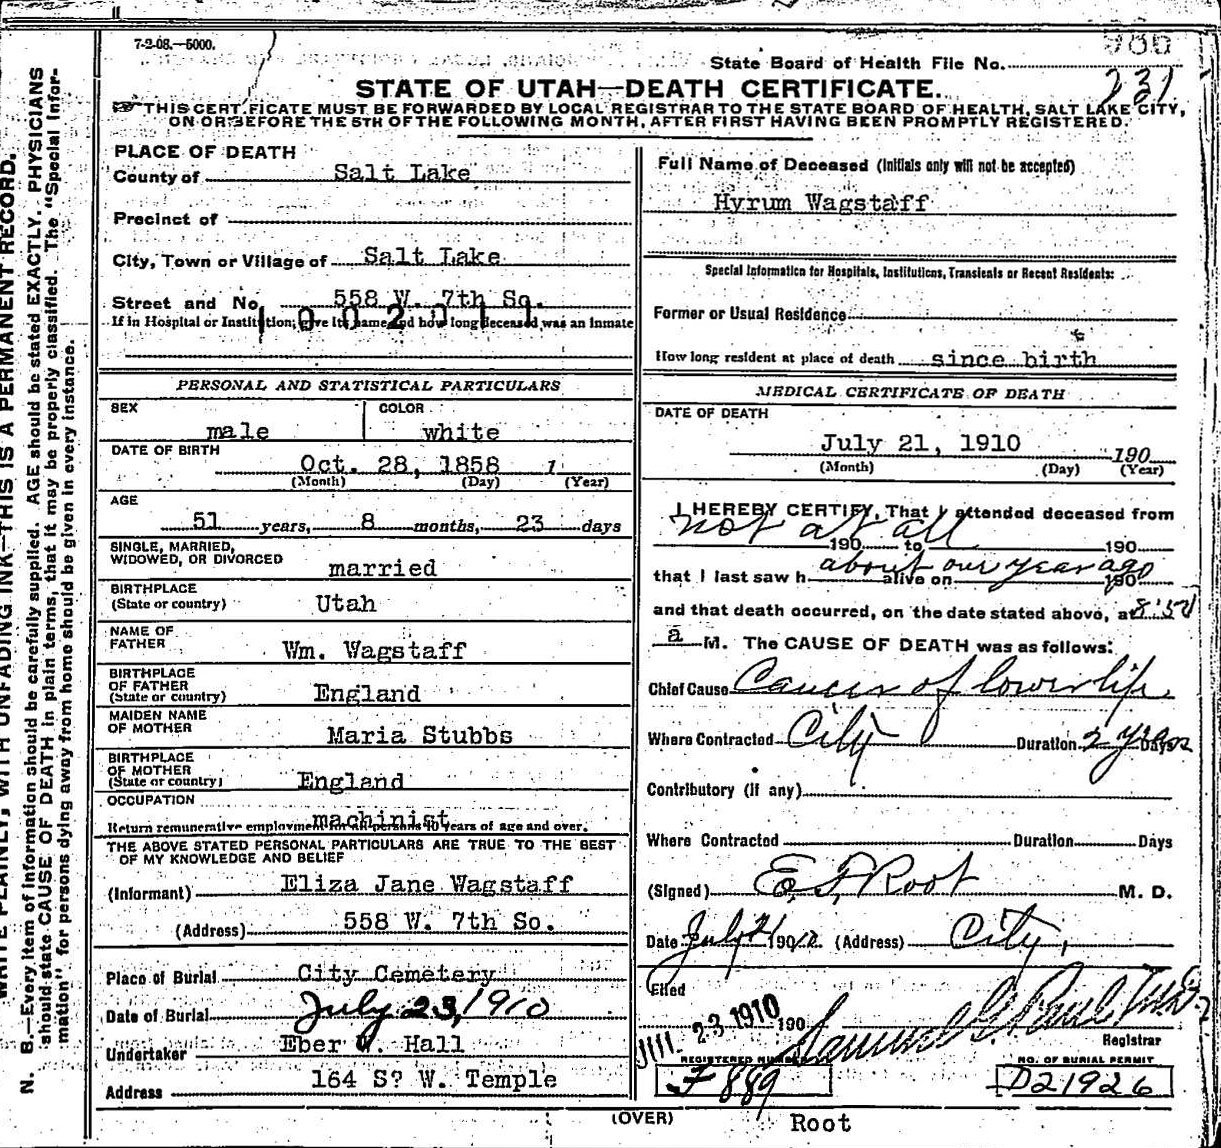 7-2-08.—5000.
State Board of Health File No.
231
STATE OF UTAH—DEATH CERTIFICATE.
THIS CERTIFICATE MUST BE FORWARDED BY LOCAL REGISTRAR TO THE STATE BOARD OF HEALTH, SALT LAKE CITY,
ON OR BEFORE THE 5TH OF THE FOLLOWING MONTH, AFTER FIRST HAVING BEEN PROMPTLY REGISTERED.
WRITE PLAINLY, WITH UNFADING INK—THIS IS A PERMANENT RECORD.
N. B.—Every item of information should be carefully supplied. AGE should be stated EXACTLY. PHYSICIANS
should state CAUSE OF DEATH in plain terms, that it may be properly classified. The "Special Infor-
mation" for persons dying away from home should be given in every instance.
PLACE OF DEATH
County of Salt Lake
Precinct of
City, Town or Village of Salt Lake
Street and No. 558 W. 7th So.
If in Hospital or Institution, give its name and how long deceased was an inmate
PERSONAL AND STATISTICAL PARTICULARS
SEX COLOR
male white
DATE OF BIRTH
Oct. 28, 1858 1
(Month) (Day) (Year)
AGE
51 years, 8 months, 23 days
SINGLE, MARRIED,
WIDOWED, OR DIVORCED married
BIRTHPLACE
(State or country) Utah
NAME OF
FATHER Wm. Wagstaff
BIRTHPLACE
OF FATHER
(State or country) England
MAIDEN NAME
OF MOTHER Maria Stubbs
BIRTHPLACE
OF MOTHER
(State or country) England
OCCUPATION
machinist
Return remunerative employment for all persons 10 years of age and over.
THE ABOVE STATED PERSONAL PARTICULARS ARE TRUE TO THE BEST
OF MY KNOWLEDGE AND BELIEF
(Informant) Eliza Jane Wagstaff
(Address) 558 W. 7th So.
Place of Burial City Cemetery
Date of Burial July 23, 1910
Undertaker Eber W. Hall
Address 164 S? W. Temple
Full Name of Deceased (Initials only will not be accepted)
Hyrum Wagstaff
Special Information for Hospitals, Institutions, Transients or Recent Residents:
Former or Usual Residence
How long resident at place of death since birth
MEDICAL CERTIFICATE OF DEATH
DATE OF DEATH
July 21, 1910 190
(Month) (Day) (Year)
I HEREBY CERTIFY, That I attended deceased from
not at all
190 to 190
that I last saw h about one year ago alive on 190
and that death occurred, on the date stated above, at 8:50
a M. The CAUSE OF DEATH was as follows:
Chief Cause Cancer of lower lip
Where Contracted City Duration 2 years Days
Contributory (if any)
Where Contracted Duration Days
(Signed) E. F. Root M. D.
Date July 21 1910. (Address) City.
Filed
JUL 23 1910 190 Samuel G. Paul
Registrar
REGISTERED NUMBER NO. OF BURIAL PERMIT
F 889 D21926
(OVER) Root